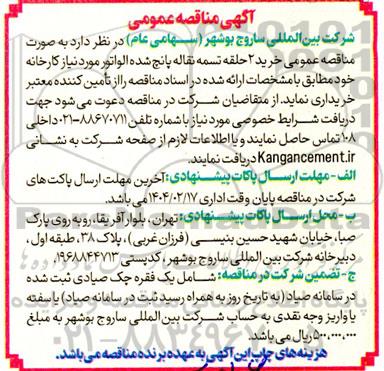 آگهی مناقصه عمومی
شرکت بین‌المللی ساروج بوشهر (سهامی عام) در نظر دارد به صورت
مناقصه عمومی خرید ۲ حلقه تسمه نقاله پانچ شده الواتور مورد نیاز کارخانه
خود مطابق با مشخصات ارائه شده در اسناد مناقصه را از تأمین کننده معتبر
خریداری نماید. از متقاضیان شرکت در مناقصه دعوت می شود جهت
دریافت شرایط خصوصی مورد نیاز با شماره تلفن ۸۸۶۷۰۷۱۱-۰۲۱ داخلی
۱۰۸ تماس حاصل نمایند و یا اطلاعات لازم از صفحه شرکت به نشانی
Kangancement.ir دریافت نمایند.
الف- مهلت ارسال پاکات پیشنهادی: آخرین مهلت ارسال پاکت های
شرکت در مناقصه پایان وقت اداری ۱۴۰۴/۰۲/۱۷ می باشد.
ب- محل ارسال پاکات پیشنهادی: تهران، بلوار آفریقا، روبه روی پارک
صبا، خیابان شهید حسین بنیسی (فرزان غربی)، پلاک ۳۸، طبقه اول،
دبیرخانه شرکت بین المللی ساروج بوشهر، کدپستی ۱۹۶۸۸۴۴۷۱۳
ج- تضمین شرکت در مناقصه: شامل یک فقره چک صیادی ثبت شده
در سامانه صیاد (به تاریخ روز به همراه رسید ثبت در سامانه صیاد) یا سفته
یا واریز وجه نقدی به حساب شرکت بین المللی ساروج بوشهر به مبلغ
۵۰۰,۰۰۰,۰۰۰ ریال می باشد.
هزینه های چاپ این آگهی به عهده برنده مناقصه می باشد.
۰۲۱-۸۸۳۴۹۶۷